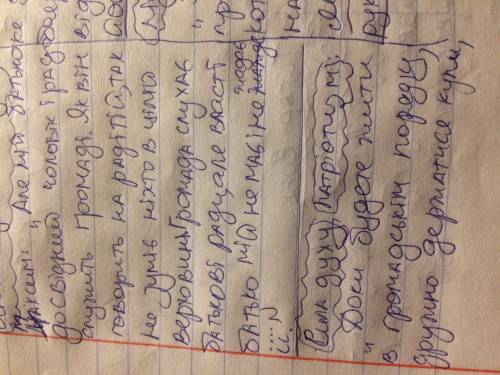 Максим: "Але мій батько же
досвідний чоловік і радо
служить громаді. Як він
говорить на раді тій, так
не зуміє ніхто в цілій
верховині. Громада слухає
батькові ради, але власті
батько мій не має і не жадає
її..."
Сила духу (патріотизм)
"Доки будете жити
в громадськім порядку,
дружно держатися купи,